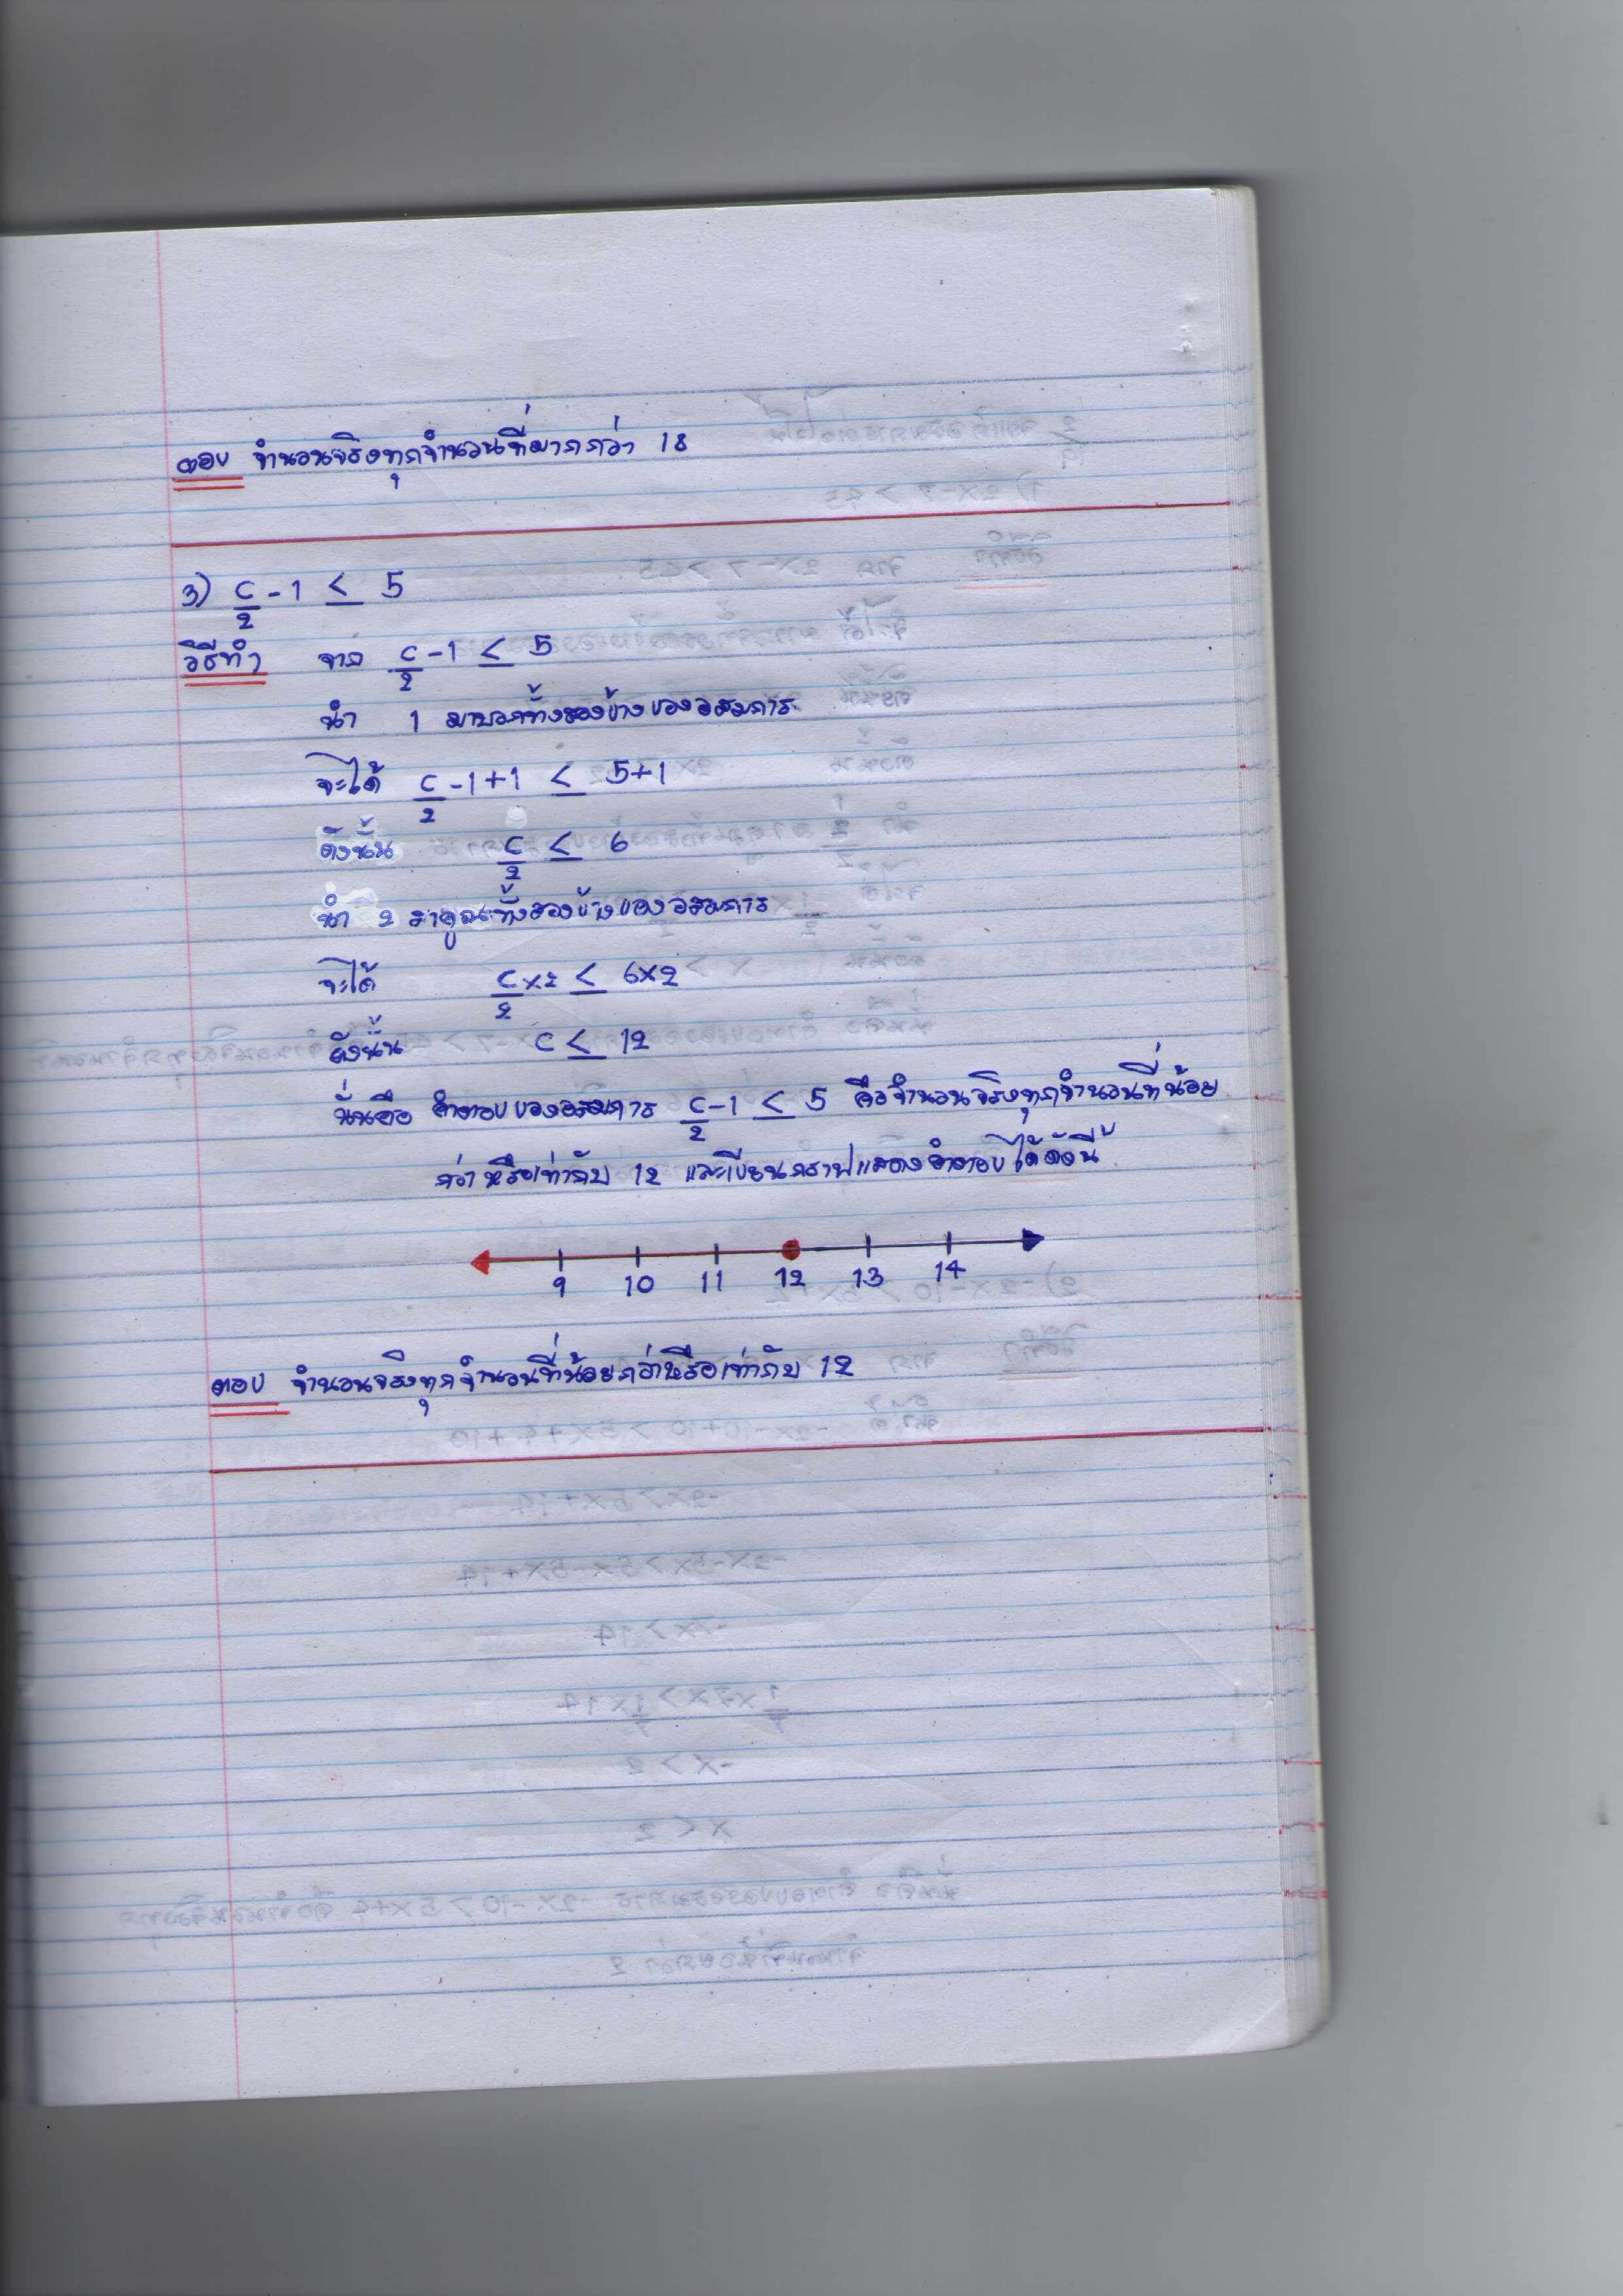 ตอบ จำนวนจริงทุกจำนวนที่มากกว่า 18
3) c/2 - 1 ≤ 5
วิธีทำ จาก c/2 - 1 ≤ 5
นำ 1 มาบวกทั้งสองข้างของอสมการ
จะได้ c/2 - 1 + 1 ≤ 5+1
ดังนั้น c/2 ≤ 6
นำ 2 มาคูณทั้งสองข้างของอสมการ
จะได้ c/2 x 2 ≤ 6x2
ดังนั้น c ≤ 12
นั่นคือ คำตอบของอสมการ c/2 - 1 ≤ 5 คือจำนวนจริงทุกจำนวนที่น้อย
กว่าหรือเท่ากับ 12 และเขียนกราฟแสดงคำตอบได้ดังนี้
9 10 11 12 13 14
ตอบ จำนวนจริงทุกจำนวนที่น้อยกว่าหรือเท่ากับ 12